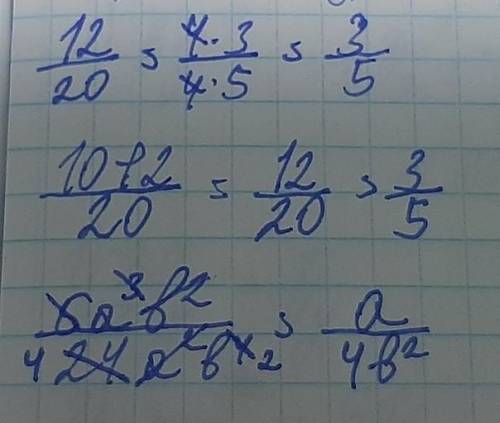 12/20 = 4·3/4·5 = 3/5
10+2/20 = 12/20 = 3/5
6a³b²/4 24a²b⁴ 2 = a/4b²